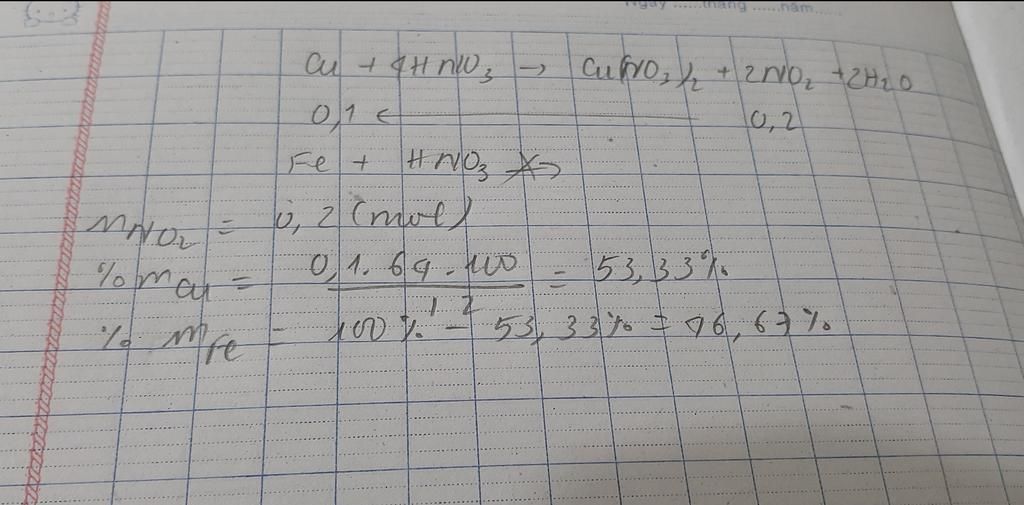 Ngày ......tháng ......năm......
Cu + 4HNO3 → Cu(NO3)2 + 2NO2 + 2H2O
0,1 ← 0,2
Fe + HNO3 ↛
nNO2 = 0,2 (mol)
% mCu = 0,1.64.100 / 12 = 53,33%
% mFe = 100% - 53,33% = 46,67%